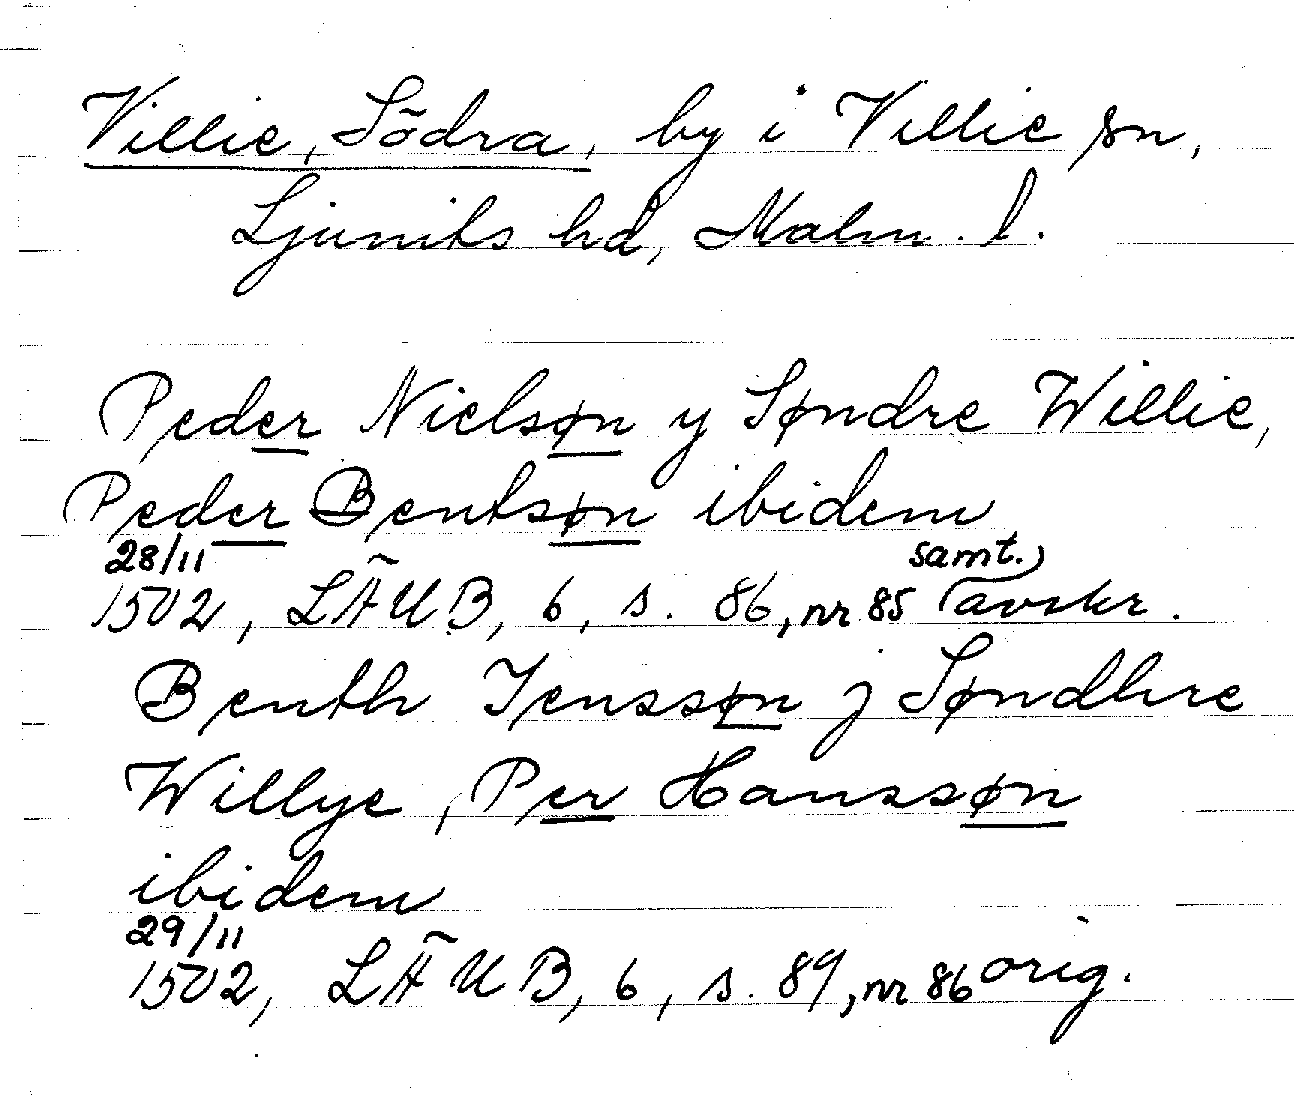 Villie, Södra, by i Villie sn,
Ljunits hd, Malm. l.
Peder Nielsøn y Søndre Willie,
Peder Bentsøn ibidem
28/11 samt.)
1502, LÄUB, 6, s. 86, nr 85 (avskr.
Benth Jenssøn j Søndhre
Willye, Per Hanssøn
ibidem
29/11
1502, LÄUB, 6, s. 89, nr 86 orig.